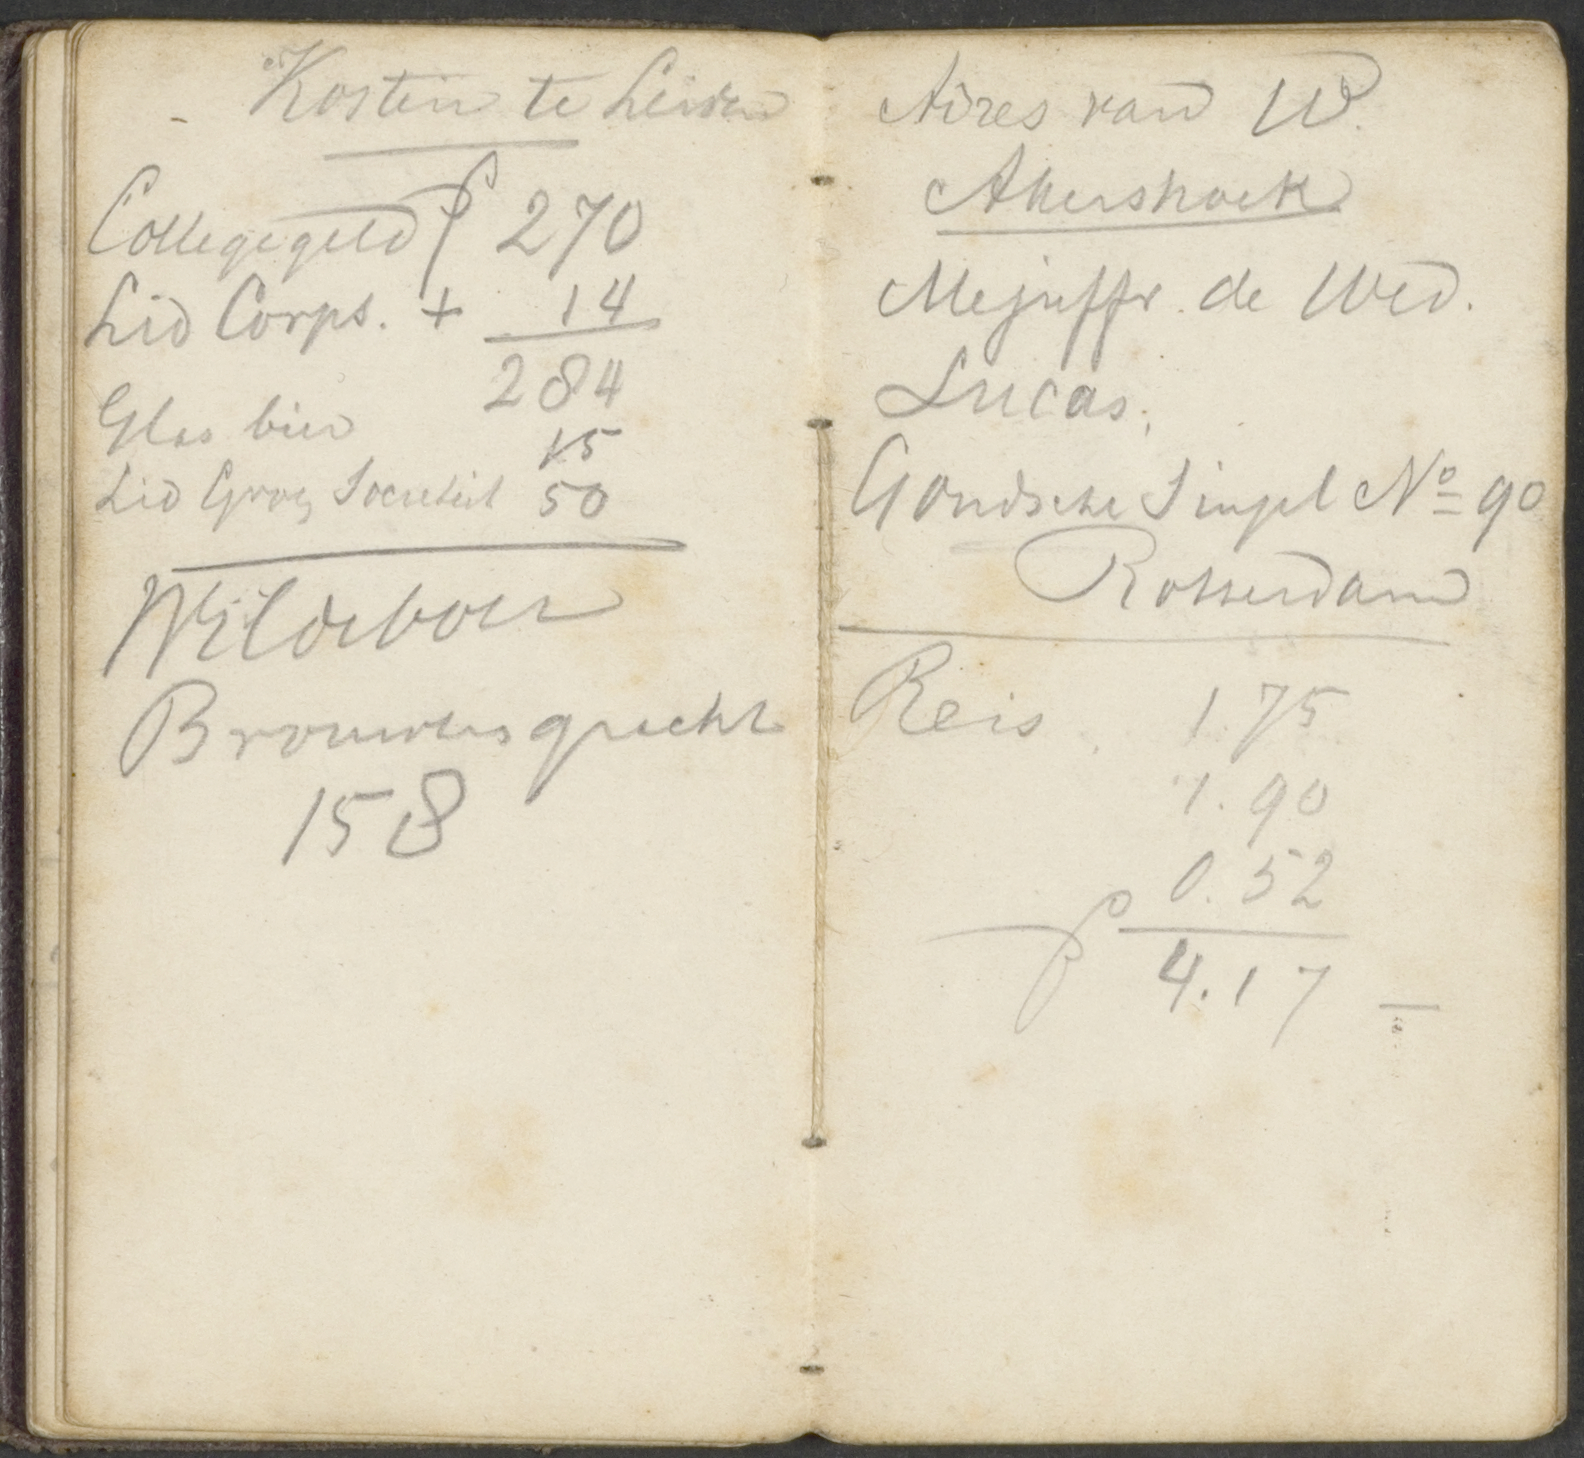 Kosten te Leiden
Collegegeld f 270
Lid Corps. + 14
284
Glas bier 15
Lid Groep Societeit 50
Wildeboer
Brouwersgracht
158
Adres van W.
Akershoek
Mejuffr. de Wed.
Lucas.
Goudsche Singel No 90
Rotterdam
Reis 1.75
1.90
0.52
f 4.17